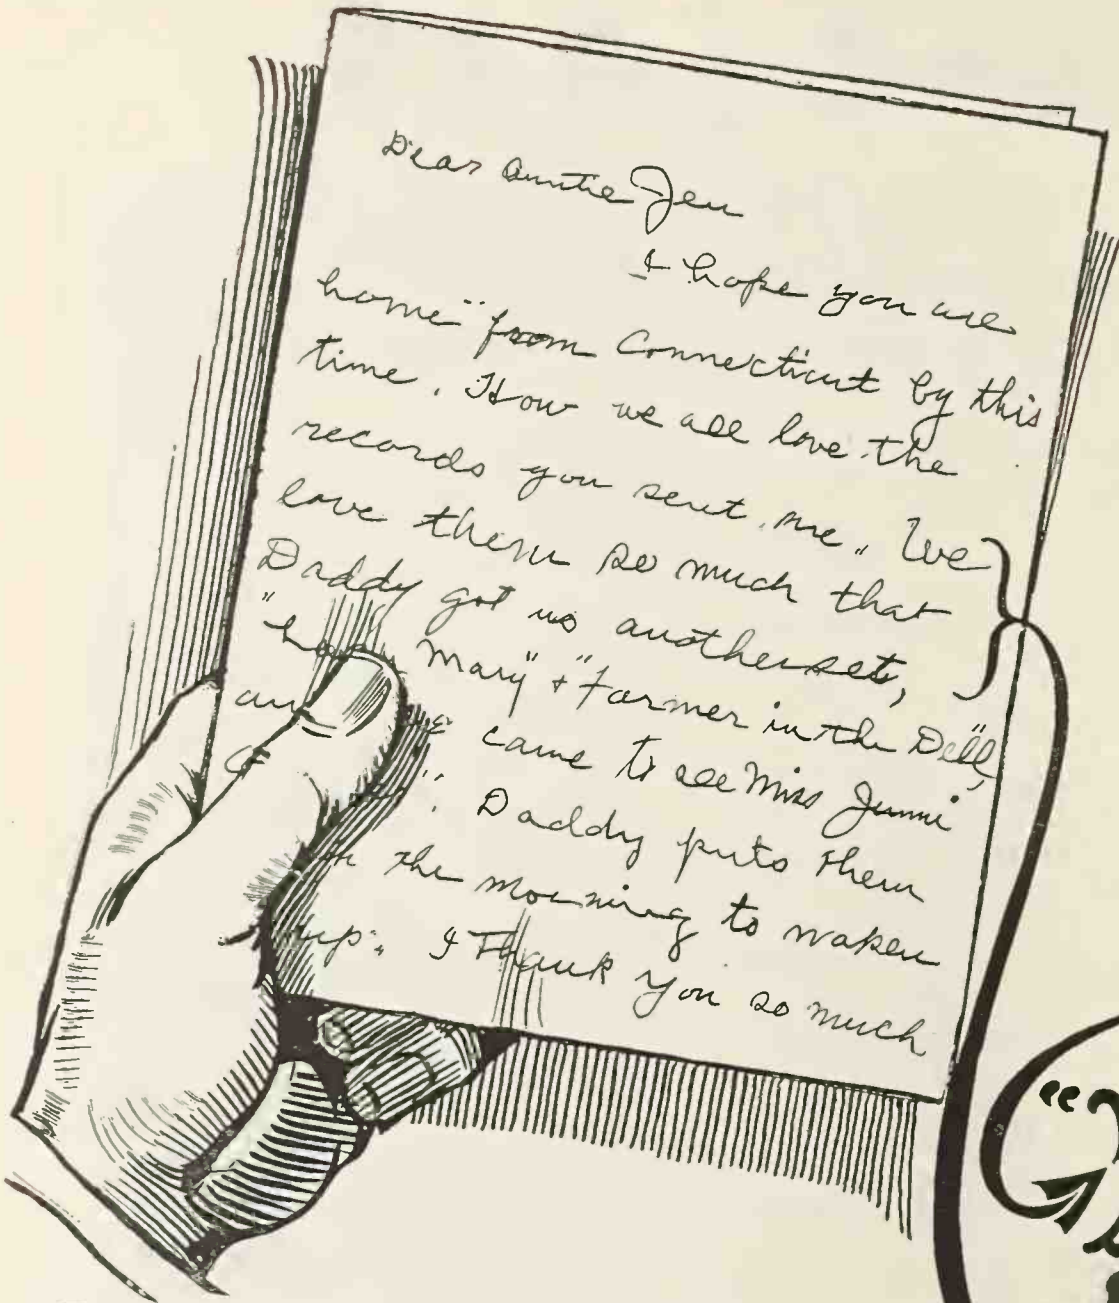 Dear Auntie Jen
I hope you are
home from Connecticut by this
time. How we all love the
records you sent me. We
love them so much that
Daddy got us another set,
Mary" + "Farmer in the Dell,"
came to see Miss Jennie
". Daddy puts them
the morning to waken
up. I Thank you so much
"